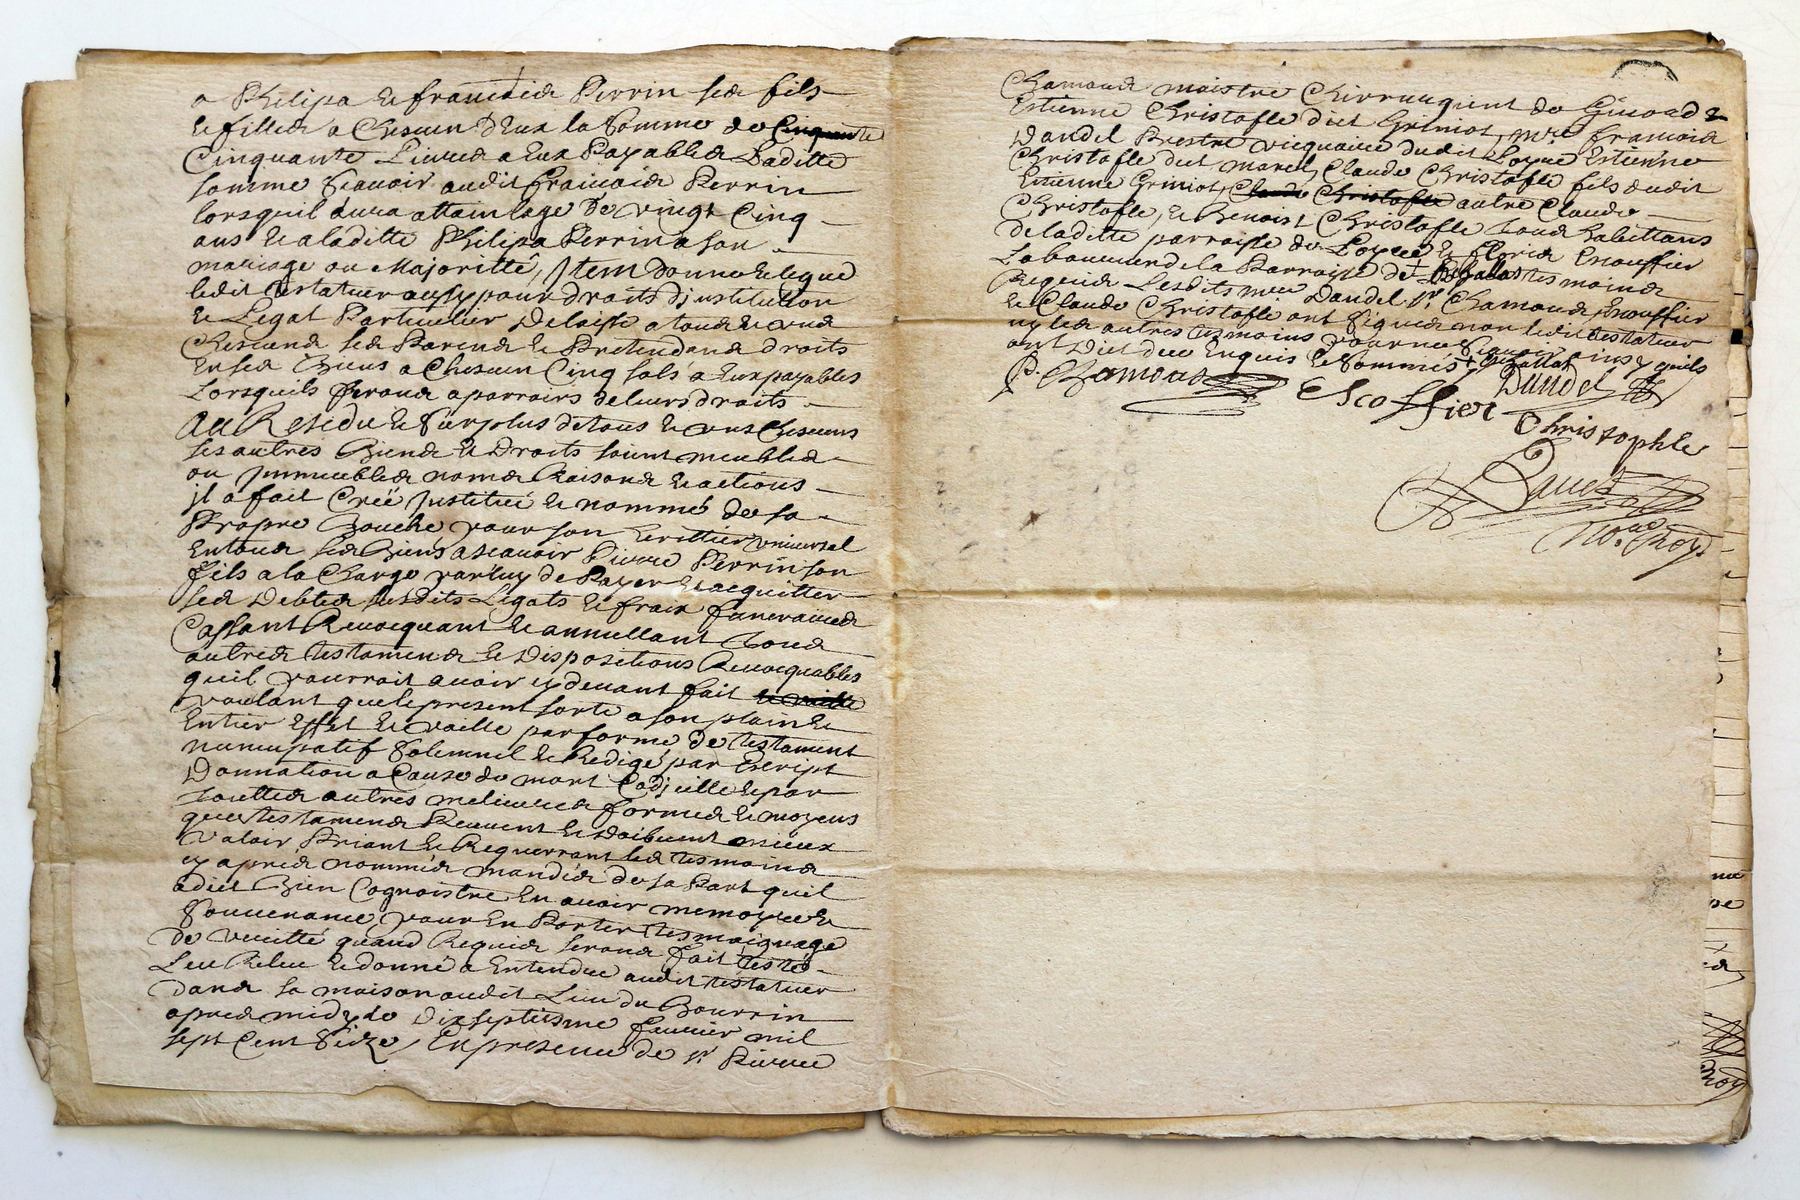 a Philipa & francoise Perrin ses fils
& filles a Chescun D'Eux la Somme de Cinquante
Cinquante Livres a Eux Payables Laditte
somme Scavoir audit francois Perrin
lorsquil aura attain lage de vingt Cinq
ans & a laditte Philipa Perrin a son
mariage ou Majoritté, Item donne & legue
ledit testateur aussy pour droits d'institution
& Legat Particulier Delaisse a tous & uns
Chescuns ses Parens & Pretendans droits
En ses Biens a Chescun Cinq sols a Eux payables
Lorsquils feront apparoirs de leurs droits
Au Residu & Surplus de tous & uns Chescuns
ses autres Biens & Droits soient meubles
ou Immeubles noms Raisons & actions
il a fait Créé Institué & nommé de sa
Propre Bouche pour son heritier universel
En tous ses Biens a scavoir Pierre Perrin son
fils a la Charge par luy de Payer & acquitter
ses Debtes susdits Legats & frais funeraires
Cassant Revocquant & annullant tous
autres testamens & Dispositions Revocquables
quil pourroit avoir cy devant fait
voulant que le present sorte a son plain &
Entier Effet & vaille par forme de testament
nuncupatif Solemnel & Redigé par Escript
Donnation a Cause de mort Codicille & par
touttes autres melieures formes & moyens
que testamens Peuvent & Doibvent mieux
Valoir Priant & Requerrant les tesmoins
cy apres nommés mandés de sa Part quil
a dict Bien Cognoistre En avoir memoyre &
Souvenance pour En Porter tesmoignage
De veritté quand Requis seront fait testé
Leu Releu & donné a Entendre audit testateur
Dans sa maison audit Lieu du Bourrin
apres midy le Dixseptiesme fevrier mil
sept Cent Seize / En presence de Sr Pierre
Chamous maistre Chirrurgient de
Estienne Christofle dict Griniot, mre francois
Dandel Prestre vicquaire dudit Loyre Estienne
Christofle dict marel, Claude Christofle fils dudit
Estienne Griniot, Claude Christofle autre Claude
Christofle, & Benoist Christofle tous habittans
de laditte parroisse de Loyre & Escouffier
Laboureur de la Parroisse de tesmoins
Requis Lesdits mre Dandel Sr Chamous Escouffier
& Claude Christofle ont Signés non ledit testateur
ny les autres tesmoins pour ne Scavoir ainsy quils
ont Dict de ce Enquis & Sommés
P. Chamous Escoffier Dandel
Christophle
No. Roy.